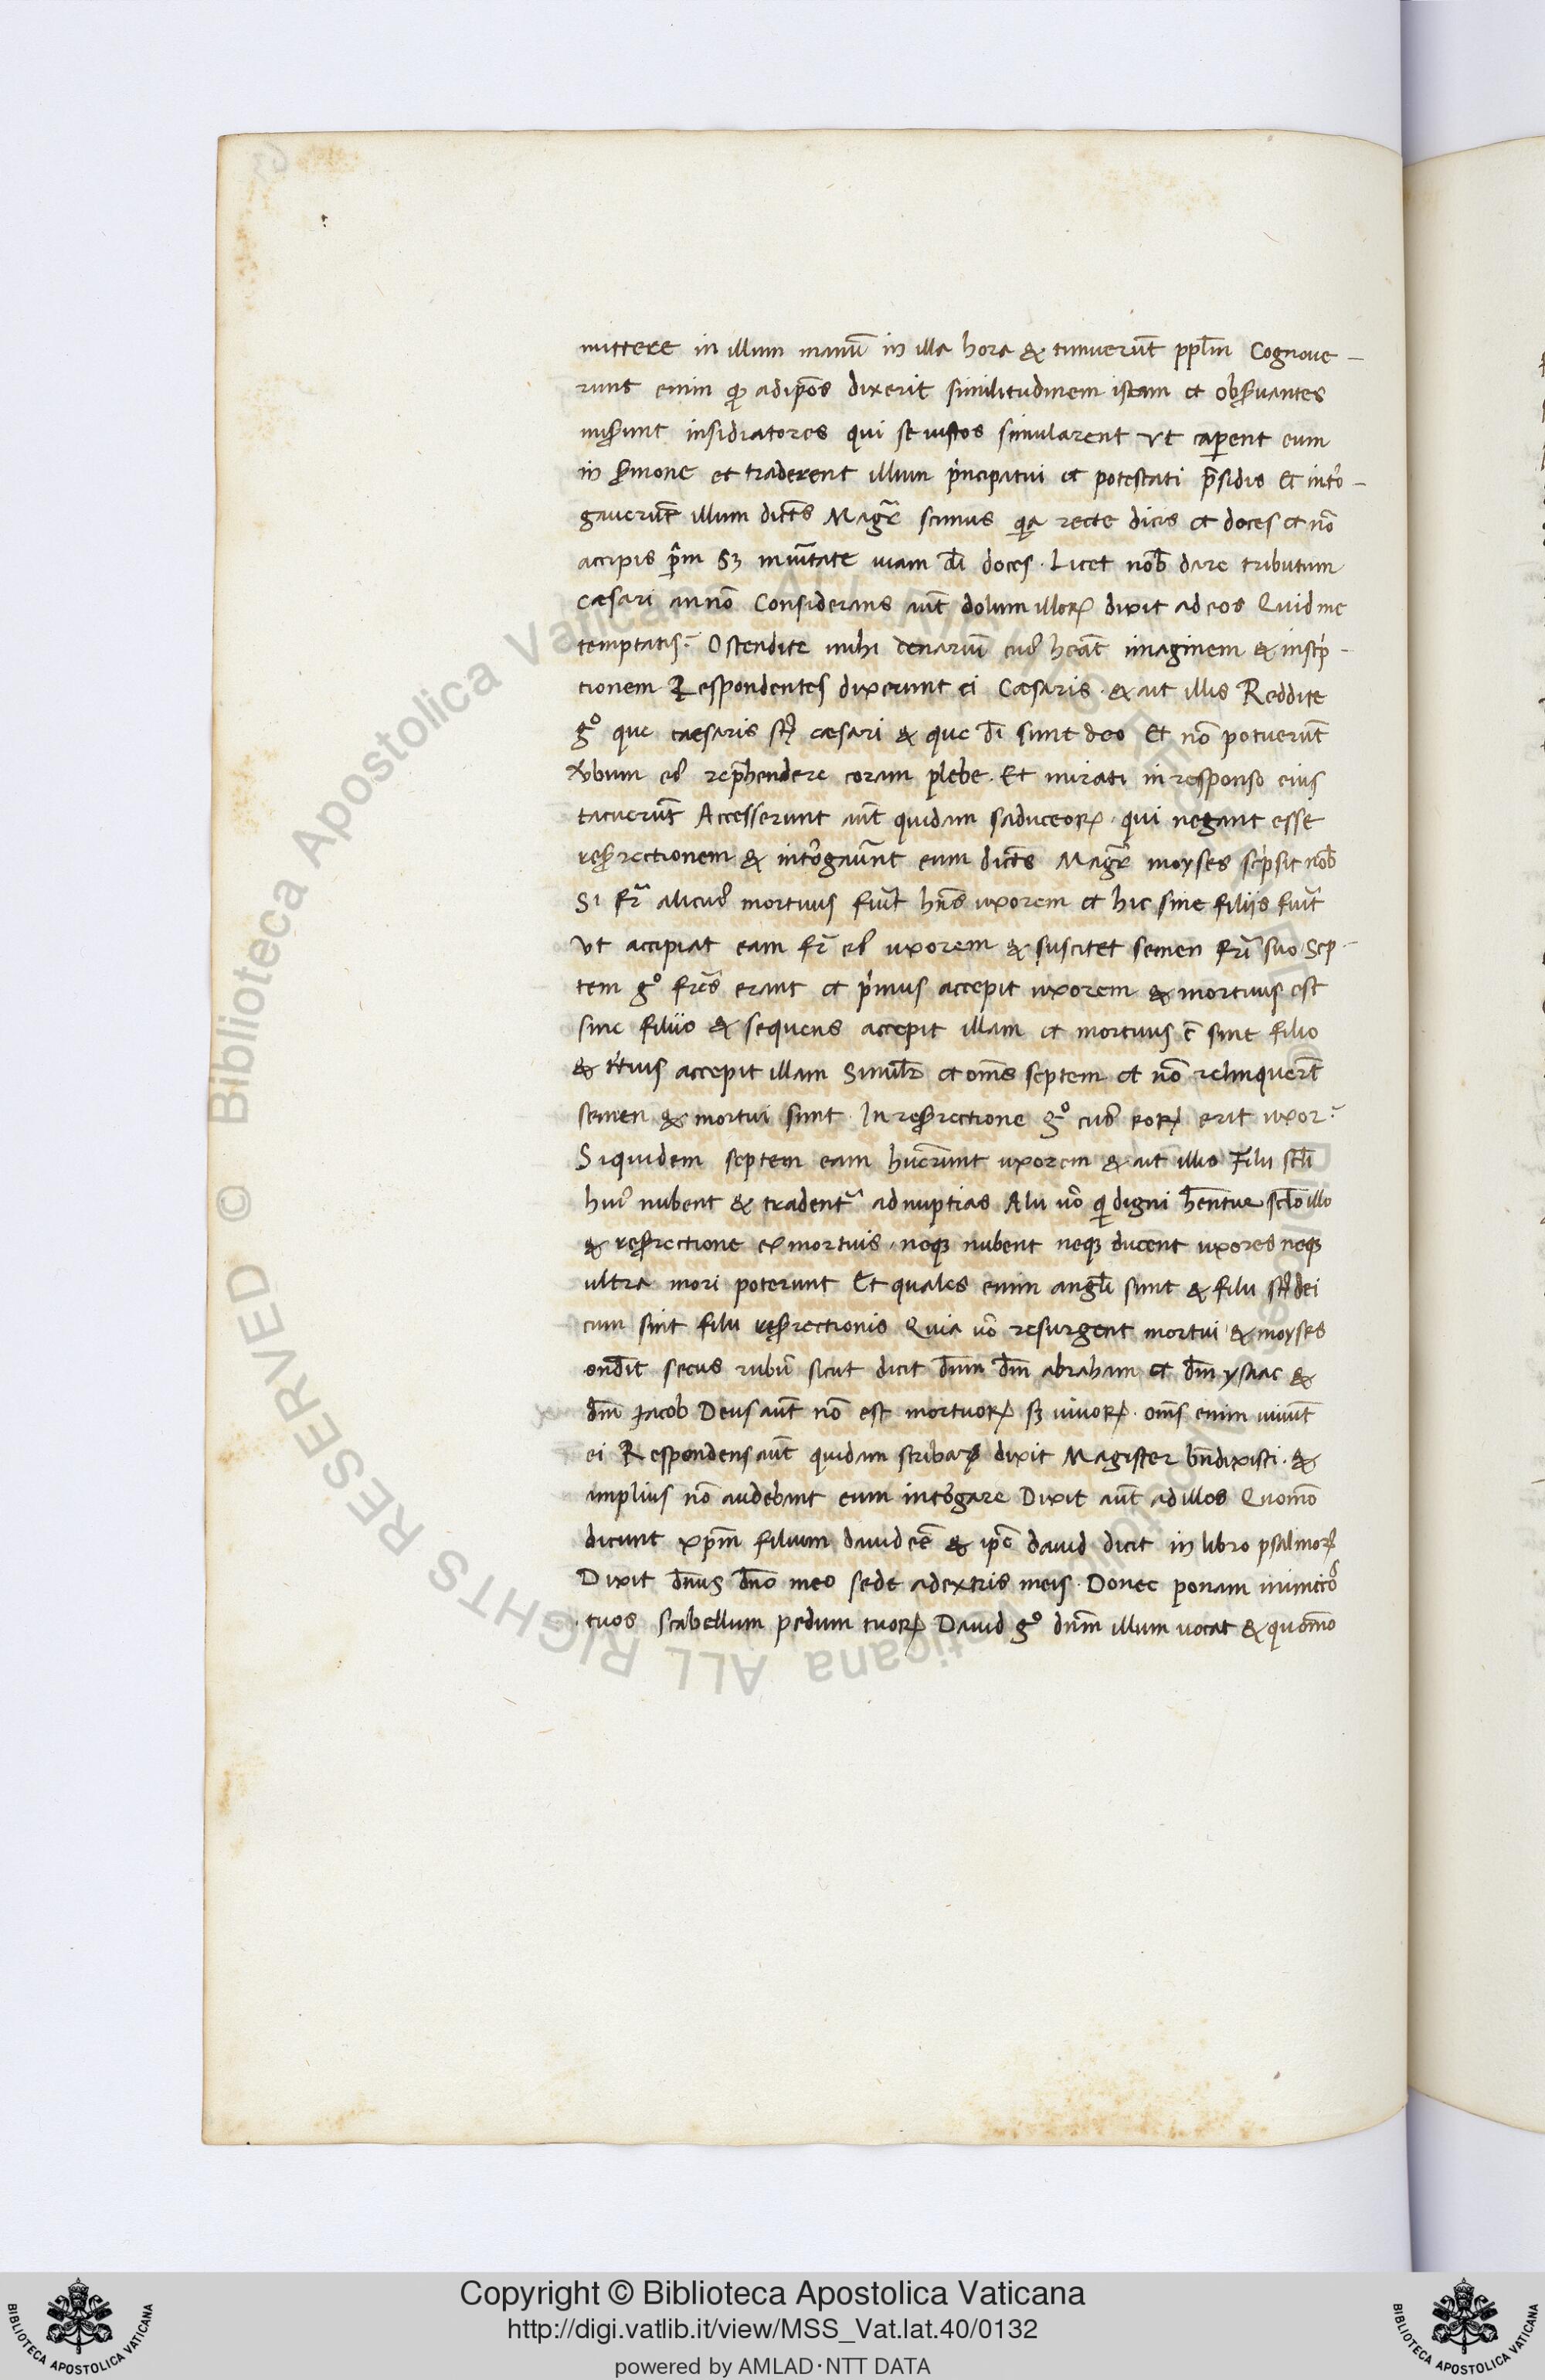 mittere in illum manū in illa hora & timuerūt ppl̄m Cognoue-
runt enim qđ ad ip̄os dixerit similitudinem istam et obꝑuantes
miꝑunt insidiatores qui se iustos simularent vt caꝑent eum
in ꝑmone et traderent illum pͥncipatui et potestati p̄sidis Et int̓ro-
gauerūt illum dict̄s Magr̄ scimus qͥa recte dicis et doces et nō
accipis ꝑ̄m Sꝫ inuītate uiam dī doces . Licet nob̄ dare tributum
cæsari an nō Considerans aūt dolum illoꝝ dixit ad eos Quid me
temptatis? Ostendite mihi denariū cuiꝰ hēat̄ imaginem & inscp̄-
tionem Respondentes dixerunt ei Cæsaris . & ait illis Reddite
gͦ que caesaris st̄ cæsari & que dī sunt deo Et nō potuerūt
v̓bum eiꝰ rep̄hendere coram plebe . Et mirati in responso eius
tacuerūt Accesserunt aūt quidam saduceoꝝ . qui negant esse
resꝑrectionem & int̓rogauͬnt eum dict̄s Magr̄ moyses scp̄sit nob̄
Si fr̄ alicuiꝰ mortuus fuīt hn̄s uxorem et hic sine filijs fuīt
vt accipiat eam fr̄ eiꝰ uxorem & suscitet semen fr̄i suo Sep-
tem gͦ fr̄es erant et pͥmus accepit uxorem & mortuus est
sine filiio & sequens accepit illam et mortuus ē sine filio
& tͬtius accepit illam Simulr̄ et oms̄ septem et nō relinquert̄
semen & mortui sunt . In resꝑrectione gͦ cuiꝰ eoꝝ erit uxor?
Siquidem septem eam hueͬrunt uxorem & ait illis Filii scl̄i
huiꝰ nubent & tradentᷣ ad nuptias Alii uͦo qͥ digni hēntur scl̄o illo
& resꝑrectione ex mortuis . neqꝫ nubent neqꝫ ducent uxores neqꝫ
ultra mori poterunt Et quales enim angl̄i sunt & filii st̄ dei
cum sint filii resꝑrectionis Quia uͦo resurgent mortui & moyses
ondīt secus rubū sicut dicit dn̄m dm̄ abraham et dm̄ ysaac &
dm̄ Jacob Deus aūt nō est mortuoꝝ sꝫ uiuoꝝ . oms̄ enim uiuūt
ei Respondens aūt quidam scribaꝝ dixit Magister bn̄ dixisti . &
amplius nō audebant eum int̓rogare Dixit aūt ad illos Quomō
dicunt xp̄m filium dauid eē & ip̄e dauid dicit in libro psalmoꝝ
Dixit dn̄us dn̄o meo sede a dextris meis . Donec ponam inimicoͦ
tuos scabellum pedum tuoꝝ Dauid gͦ dn̄m illum uocat & quomō
Copyright © Biblioteca Apostolica Vaticana
http://digi.vatlib.it/view/MSS_Vat.lat.40/0132
powered by AMLAD·NTT DATA